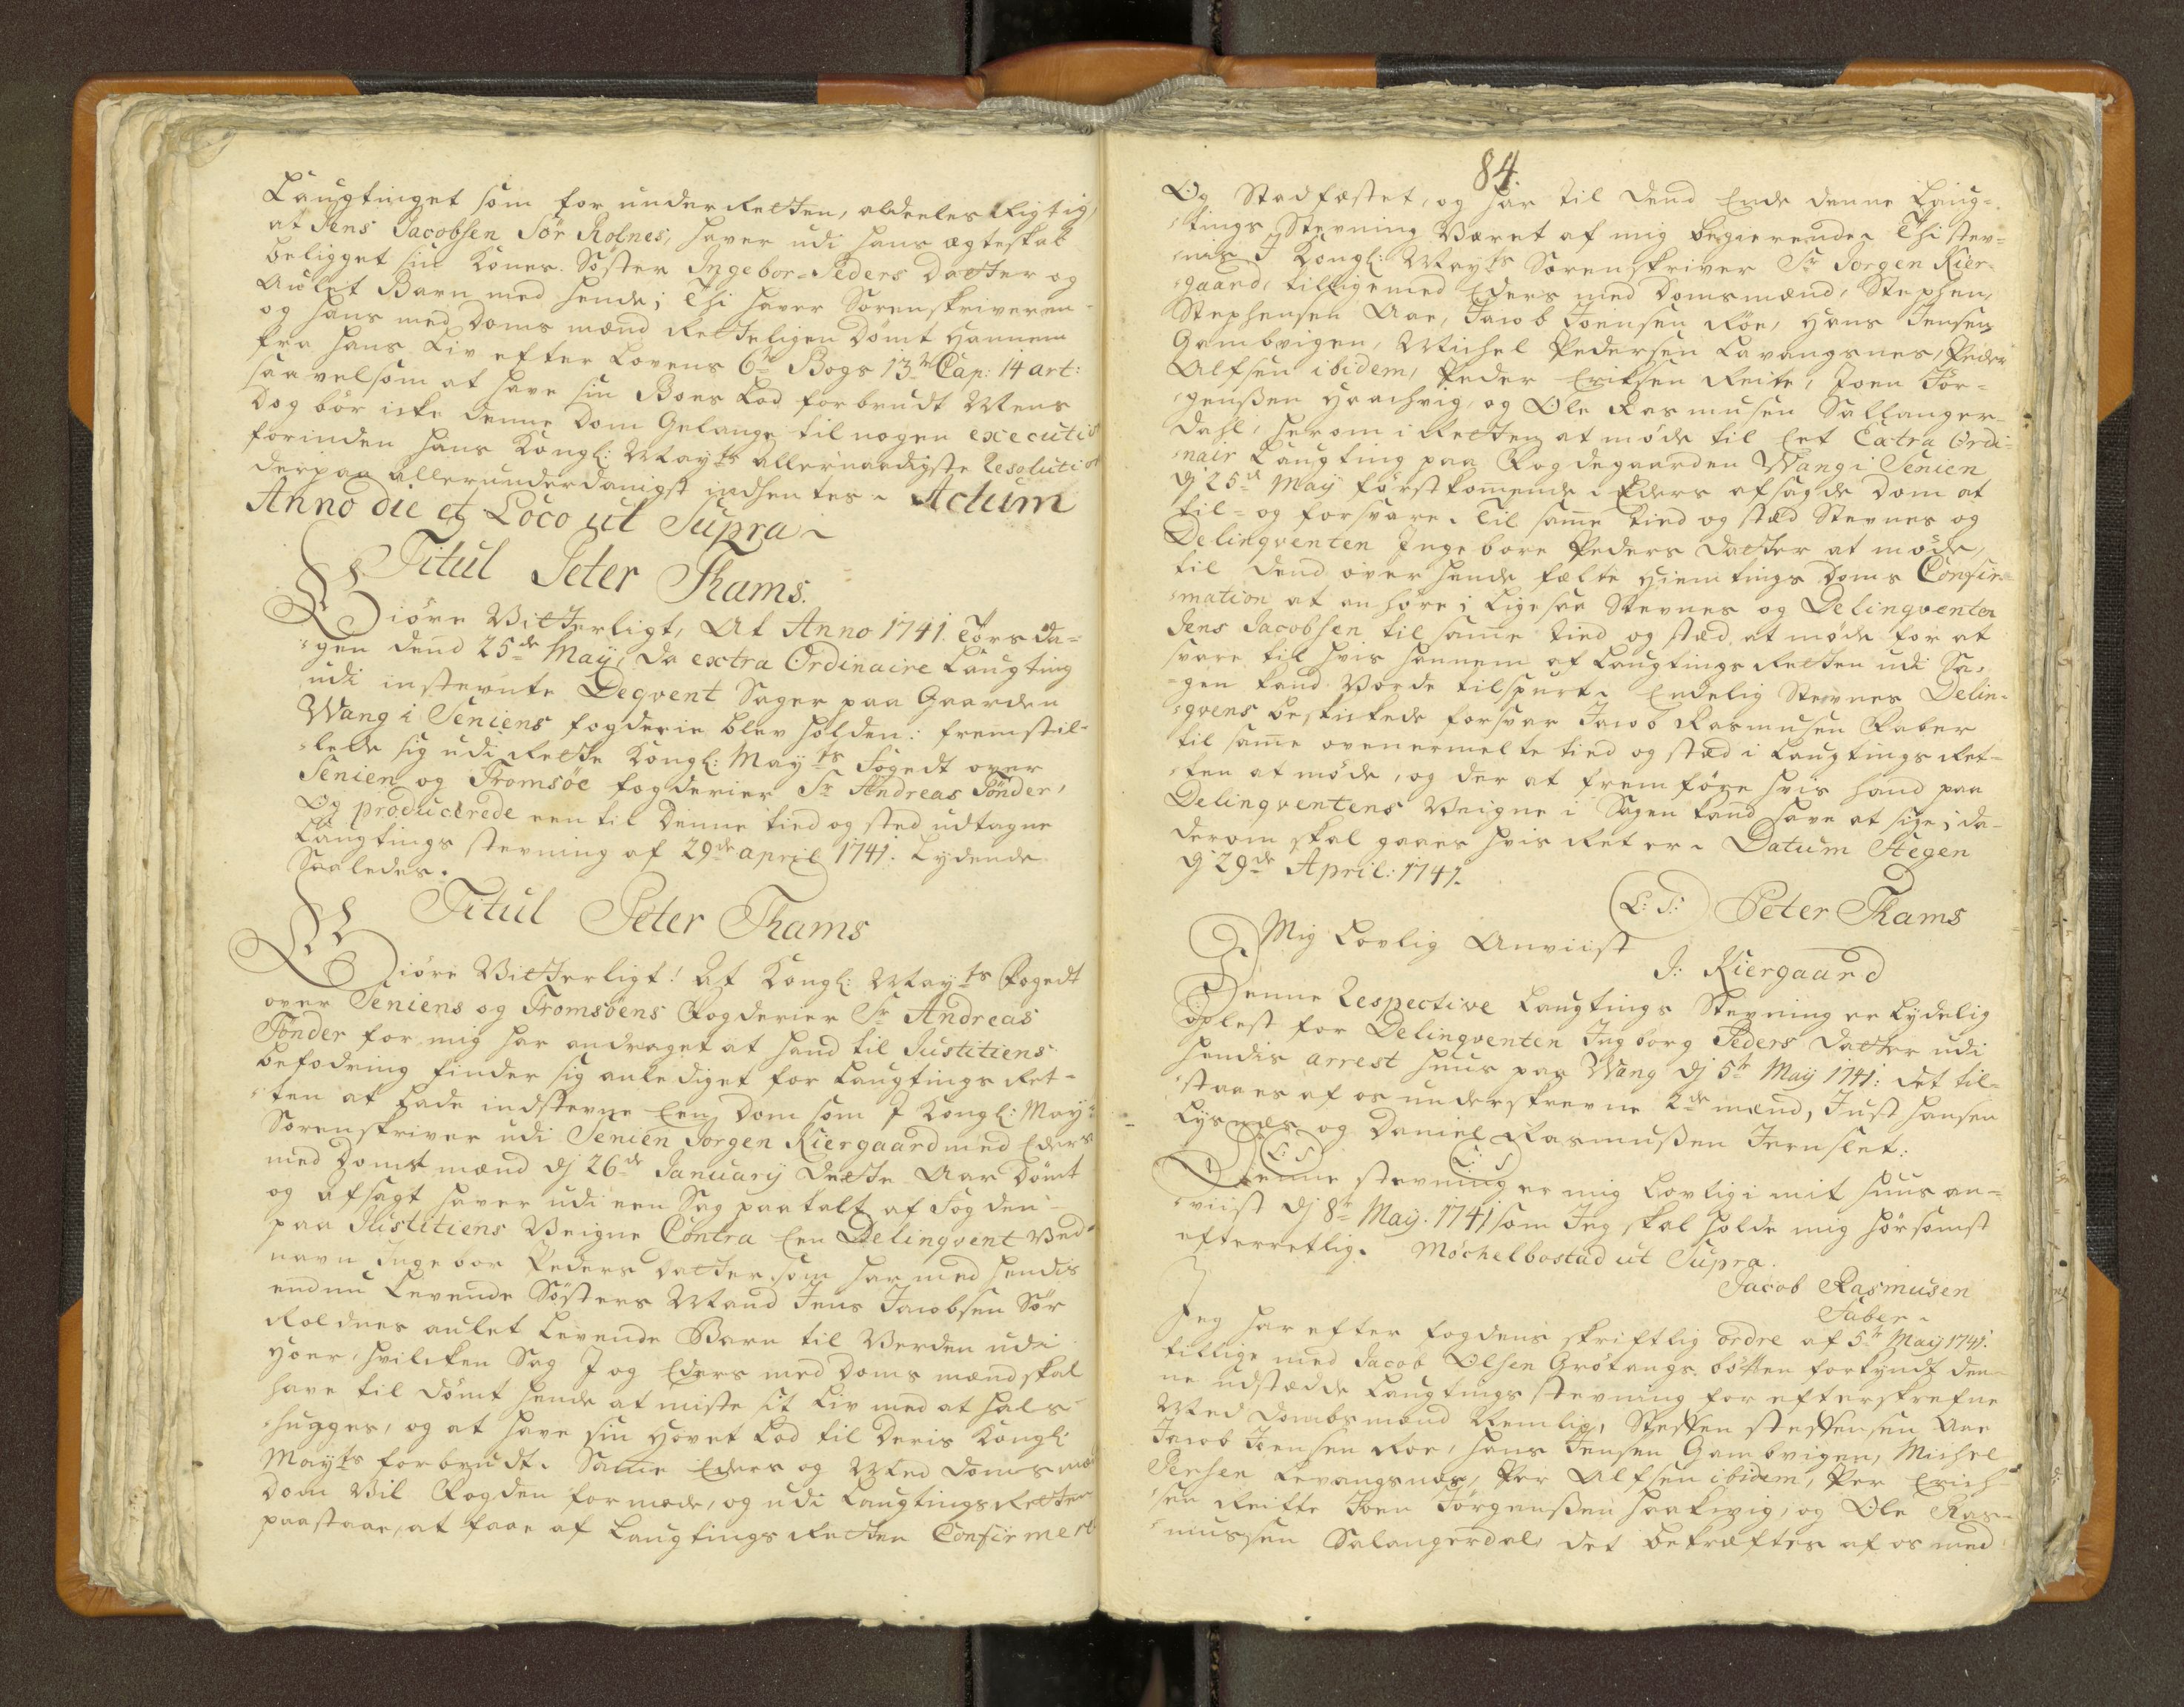 Laugtinget som for underRetten, aldeeles Rigtig,
at Jens Jacobsen Sör Rolnes, haver udi hans ægteskab
beligget sin Kones Söster Ingebor Peders Datter og
Aulet Barn med hende; Thi haver Sorenskriveren
og hans med Doms mænd Retteligen Dömt Hannem
fra hans Liv efter Lovens 6te Bogs 13de Cap: 14 art:
saavelsom at have sin Boes Lod forbrudt Mens
Dog bör icke denne Dom Gelange til nogen execution
forinden hans Kongl: Mayts allernaadigste Resolution
derpaa allerunderdanigst indhentes. Actum
Anno die et Loco ut Supra
Titul Peter Thams.
Giöre Vitterligt, At Anno 1741. Torsda=
=gen dend 25de Maÿ, da extra Ordinaire Laugting
udi instevnte Deqvent Sager paa Gaarden
Wang i Seniens fogderie blev holden: fremstil=
=lede sig udi Rette Kongl: Mayts Fogedt over
Senien og Tromsöe fogderier Sr Andreas Tönder,
Og producerede een til denne tied og sted udtagne
Laugtings stevning af 29de april 1741. Lydende
Saaledes.
Titul Peter Thams
Giöre Vitterligt! At Kongl: Mayts Fogedt
over Seniens og Tromsöens Fogderier Sr Andreas
Tönder for mig har andraget at hand til Justitiens
befodring finder sig anlediget for Laugtings Ret=
=ten at Lade indstevne Een Dom som J Kongl: Mayts
Sorenskriver udi Senien Jorgen Kiergaard med Eders
med Doms mænd dj 26de Januarÿ dette Aar Dömt
og afsagt haver udi een Sag paatalt af Fogden
paa Justitiens Veigne Contra Een Delinqvent Ved
navn Ingebor Peders Datter som har med hendis
endnu Levende Söster Mand Jens Jacobsen Sör
Roldnes aulet Levende Barn til Verden udi
Hoer, hvilcken Sag J og Eders med Doms mænd skal
have til dömt hende at miste sit Liv med at hals=
=hugges, og at have sin Hovet Lod til Deris Kongl:
Mayts forbrudt. Samme Eders og Med Doms mænd
Dom Vil Fogden formode, og udi Laugtings Retten
paastaar, at faae af Laugtings Retten Confirmert
84.
Og Stadfæstet, og har til dend Ende denne Laug=
=tings Stevning Været af mig begierende. Thi stev=
=nes J Kongl: Mayts Sorenskriver Sr Jorgen Kier=
=gaard, tilligemed Eders med Domsmænd, Stephen
Stephensen Aae, Jacob Joensen Röe, Hans Jensen
Gambvigen, Michel Pedersen Lavangsnes, Peder
Alfsen ibidem, Peder Eriksen Reite, Joen Jör=
=genßen Haachvig, og Ole Rasmusen Sallanger=
Dahl, herom i Retten at möde til Eet Extra Ordi=
=nair Laugting paa Fogdegaarden Wang i Senien
dj 25de Maÿ förstkomende. Eders afsagde Dom at
til= og forsvare. Til samme tied og stæd Stevnes og
Delinqventen Ingebore Peders Datter at möde,
til dend over hende fælte Hiemtings Doms Confir=
=mation at anhöre; Ligesaa Stevnes og Delinqventen
Jens Jacobsen til samme tied og stæd at möde for at
svare til hvis hannem af Laugtings Retten udi Sa=
=gen kand Vorde tilspurt. Endelig Stevnes Delin=
=qvens beskikede forsvar Jacob Rasmusen Faber
til samme ovenermelte tied og stæd i Laugtings Ret=
=ten at möde, og der at fremföre hvis hand paa
Delinqventens Veigne i Sagen kand have at sige; da
derom skal gaaes hvis Ret er. Datum Stegen
dj 29de April: 1741.
(L: S:) Peter Thams
Mig Lovlig Anviist
J: Kiergaard
Denne Respective Laugtings Stevning er lydelig
oplest for Delinqventen Ingborg Peders Datter udi
hendis arrest huus paa Wang dj 5te Maÿ 1741: det til=
=staaes af os underskrevne 2de mænd, Just Hansen
Lysnæs og Daniel Rasmußen Jernslet:
(L: S) (L: S)
Denne stevning er mig Lovlig i mit huus an=
=viist dj 8de Maÿ. 1741 som Jeg skal holde mig hörsomst
efterretlig. Möchelbostad ut Supra.
Jacob Rasmusen
Faber.
Jeg har efter fogdens skriftlig ordre af 5te Maÿ 1741.
tillige med Jacob Olsen Grötangs bötten forkyndt den=
ne udstædde Laugtings stevning for efterskrefne
Med Dombsmænd Nemlig, Steffen Steffensen Aae
Jacob Joensen Roe, Hans Jensen Gambvigen, Michel
Persen Levangsnæs, Per Alfsen ibidem, Per Erich=
=sen Reitte Joen Jörgenßen Haakvig, og Ole Ras=
=mussen Salangerdal, det bekræftes af os med